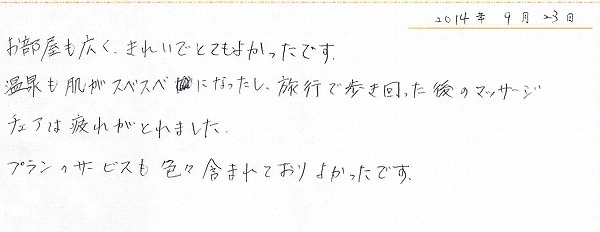 2014年 9月 23日
お部屋も広く、きれいでとてもよかったです。
温泉も肌がスベスベになったし、旅行で歩き回った後のマッサージ
チェアは疲れがとれました。
プランのサービスも色々含まれておりよかったです。